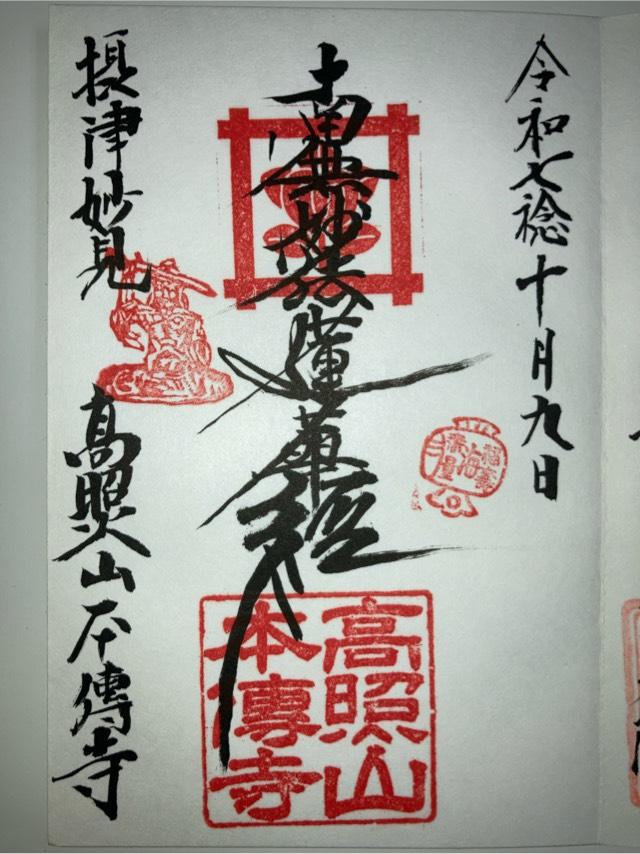 令和七稔十月九日
南無妙法蓮華経
福聚海無量
高照山
本傳寺
摂津妙見
高照山本傳寺